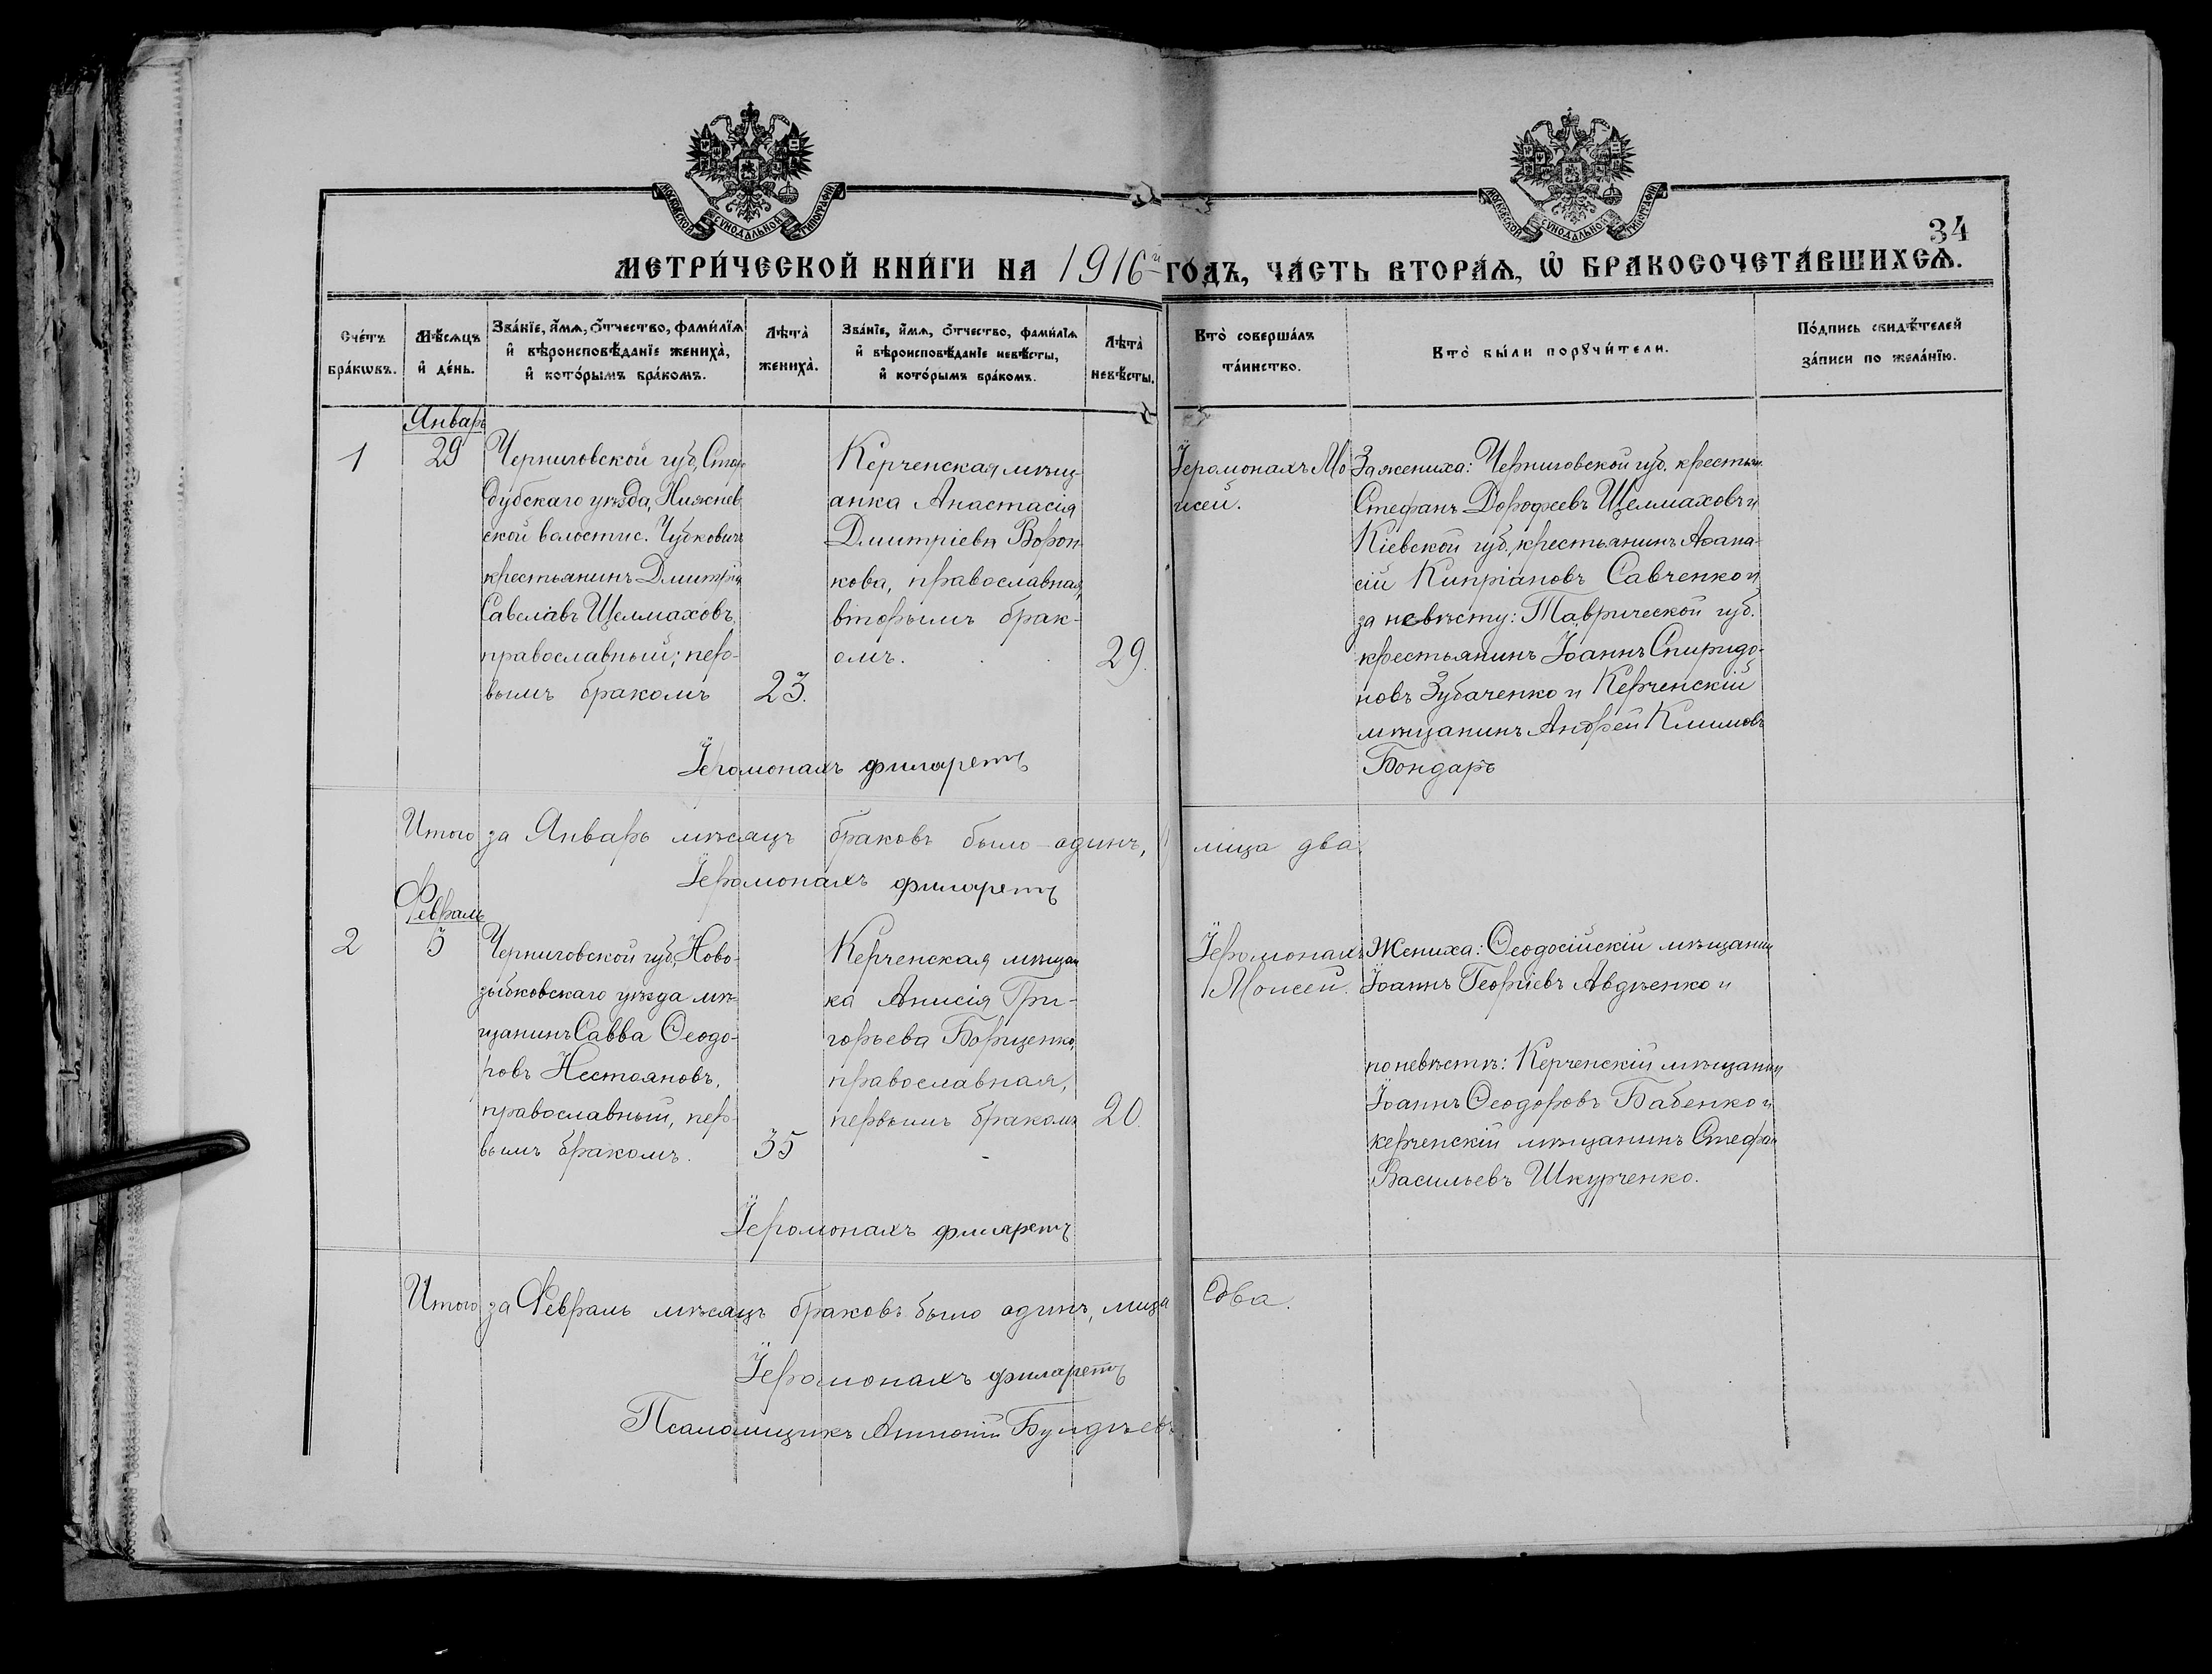 МОСКОВСКОЙ СУНОДАЛЬНОЙ ТИПОГРАФІИ
МОСКОВСКОЙ СУНОДАЛЬНОЙ ТИПОГРАФІИ
34
МЕТРИ́ЧЕСКОЙ КНИ́ГИ НА 1916й ГО́ДЪ, ЧА́СТЬ ВТОРА́Ѧ, Ѡ҆ БРАКОСОЧЕТА́ВШИХСѦ.
Сче́тъ бра́кѡвъ.
Мѣ́сѧцъ и҆ де́нь.
Зва́нїе, и҆́мѧ, ѻ҆́тчество, фами́лїѧ и҆ вѣроисповѣ́данїе жениха̀, и҆ кото́рымъ бра́комъ.
Лѣта̀ жениха̀.
Зва́нїе, и҆́мѧ, ѻ҆́тчество, фами́лїѧ и҆ вѣроисповѣ́данїе невѣ́сты, и҆ кото́рымъ бра́комъ.
Лѣта̀ невѣ́сты.
Кто̀ соверша́лъ та́инство.
Кто̀ бы́ли порꙋчи́тели.
По́дпись свидѣ́телей за́писи по жела́нїю.
Январь
1
29
Черниговской губ, Старо
дубскаго уѣзда, Нижнев
ской волости с. Чубковичъ
крестьянинъ Дмитрій
Савелавъ Щелмаховъ,
православный; пер-
вымъ бракомъ
23.
Керченская мѣщ
анка Анастасія
Дмитріевн Ворон
кова, православная,
вторымъ брак-
омъ.
29.
Іеромонахъ Мо
исей.
За жениха: Черниговской губ. крестьян.
Стефанъ Дорофеевъ Щелмаховъ и
Кіевской губ., крестьянинъ Аѳана-
сій Кипріановъ Савченко и
за невѣсту: Таврической губ.
крестьянинъ Іоаннъ Спиридо-
новъ Зубаченко и Керченскій
мѣщанинъ Андрей Климовъ
Бондарь
Іеромонахъ Филаретъ
Итого за Январь мѣсяцъ браковъ было - одинъ, лица два.
Іеромонахъ Филаретъ
Февраль
2
5
Черниговской губ, Ново-
зыбковскаго уѣзда мѣ-
щанинъ Савва Ѳеодо-
ровъ Нестояновъ,
православный, пер-
вымъ бракомъ.
35
Керченская мѣщан
ка Анисія Гри-
горьева Борщенко,
православная,
первымъ бракомъ
20.
Іеромонахъ
Моисей.
Жениха: Ѳеодосійскій мѣщанин
Іоаннъ Георгіевъ Авдѣенко и
по невѣстѣ: Керченскій мѣщанин
Іоаннъ Ѳеодоровъ Бабенко и
керченскій мѣщанинъ Стефан
Васильевъ Шкурченко.
Іеромонахъ Филаретъ
Итого за Февраль мѣсяцъ браковъ было одинъ, лица два.
Іеромонахъ Филаретъ
Псаломщикъ Антоній